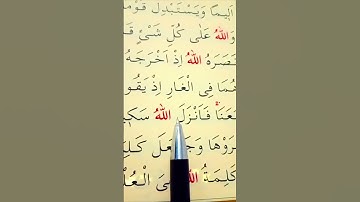 اَل۪يمًا وَيَسْتَبْدِلْ قَوْمًا
وَاللّٰهُ عَلٰى كُلِّ شَيْءٍ
نَصَرَهُ اللّٰهُ اِذْ اَخْرَجَهُ
هُمَا فِي الْغَارِ اِذْ يَقُو
مَعَنَاۚ فَاَنْزَلَ اللّٰهُ سَك۪ي
رَوْهَا وَجَعَلَ كَلِمَ
كَلِمَةُ اللّٰهِ هِيَ الْعُلْ